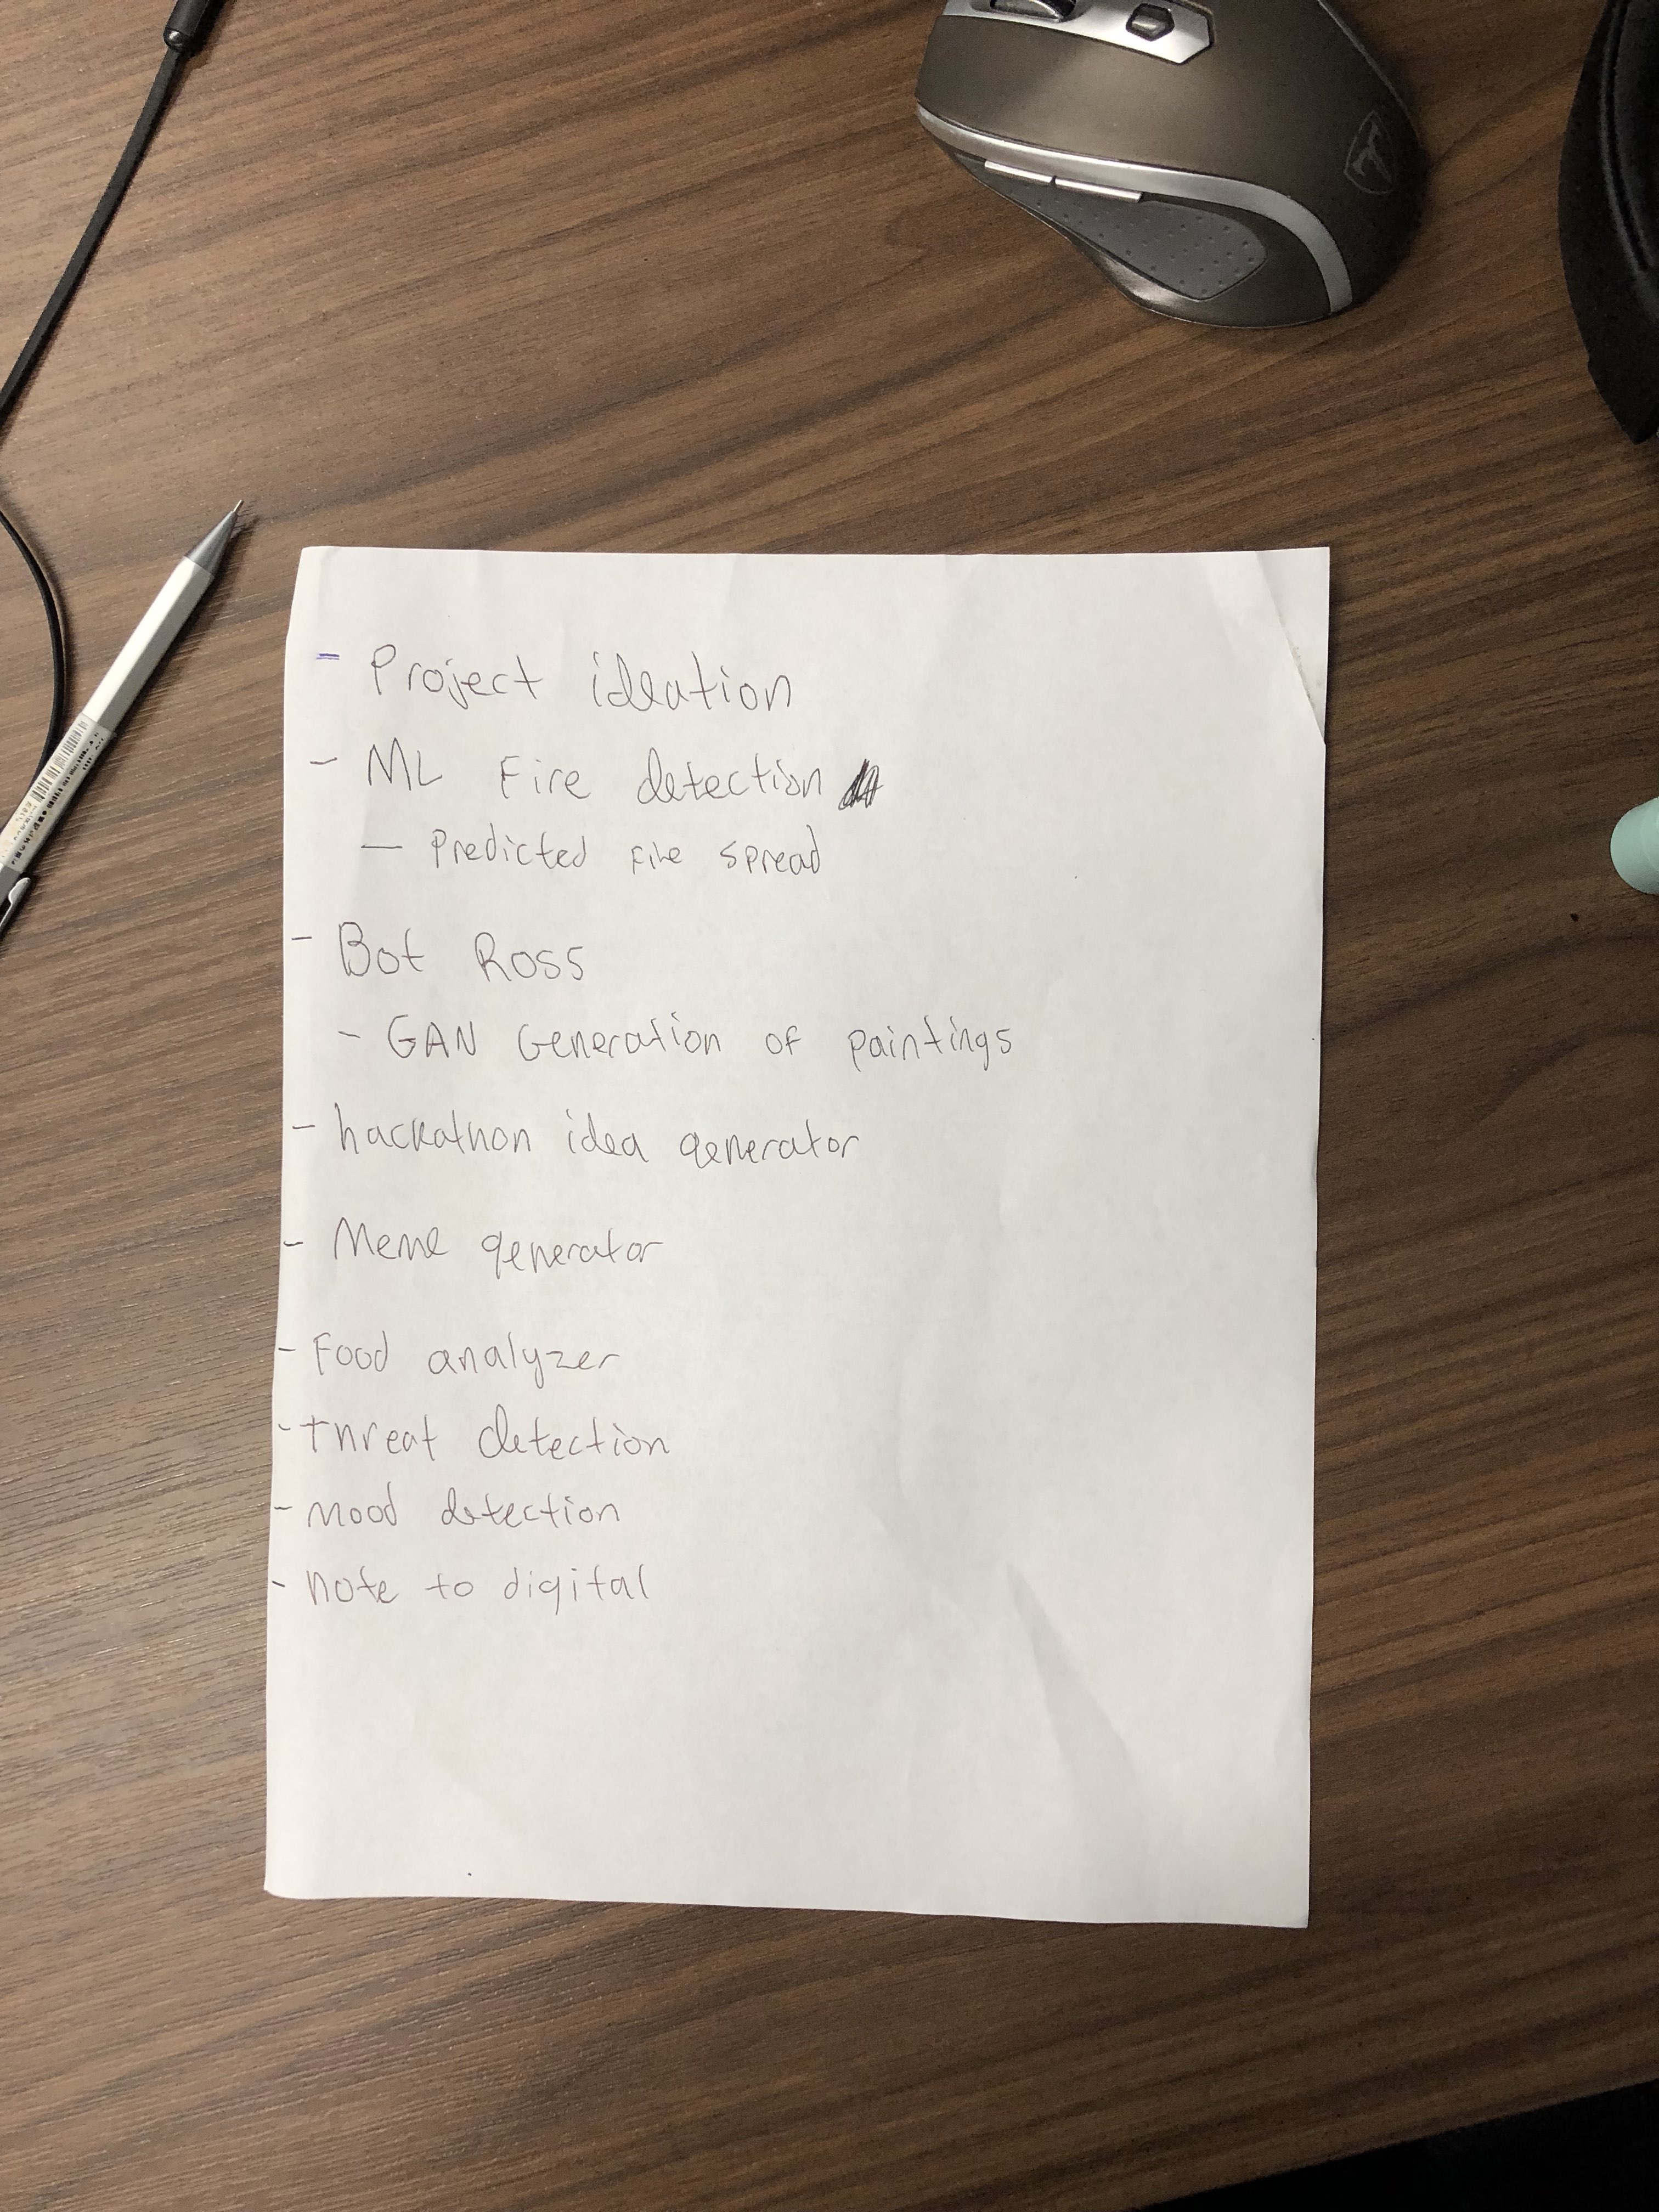 - Project ideation
- ML Fire detection
- Predicted fire spread
- Bot Ross
- GAN Generation of paintings
- hackathon idea generator
- Meme generator
- Food analyzer
- threat detection
- Mood detection
- note to digital